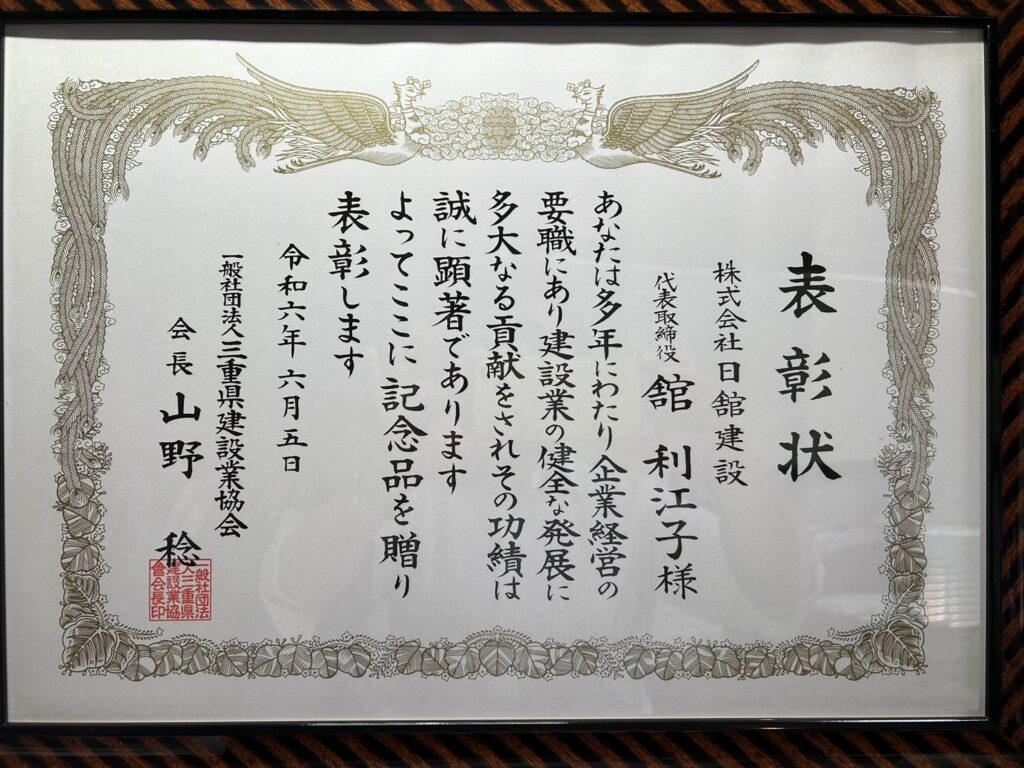 表彰状
株式会社日舘建設
代表取締役 舘 利江子様
あなたは多年にわたり企業経営の
要職にあり建設業の健全な発展に
多大なる貢献をされその功績は
誠に顕著であります
よってここに記念品を贈り
表彰します
令和六年六月五日
一般社団法人三重県建設業協会
会長 山野 稔
一般社団法
人三重県
建設業協
會会長印